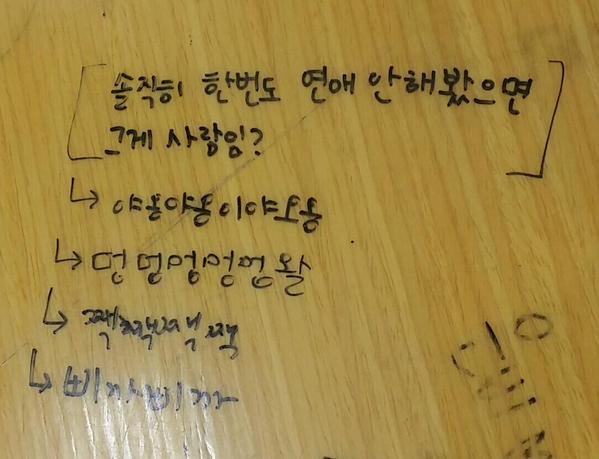 솔직히 한번도 연애 안해봤으면
그게 사람임?
↳ 야옹야옹이야오옹
↳ 멍멍멍멍멍왈
↳ 짹짹짹짹